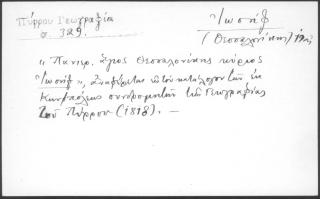 Πύρρου Γεωγραφία
σ. 329.
Ἰωσήφ
(Θεσσαλονίκης)
„ Πανιερ. Ἅγιος Θεσσαλονίκης κύριος
Ἰωσήφ „ ἀναφέρεται εἰς τὸν κατάλογον τῶν ἐν
Κων)πόλεως συνδρομητῶν τῆς Γεωγραφίας
τοῦ Πύρρου (1818). —